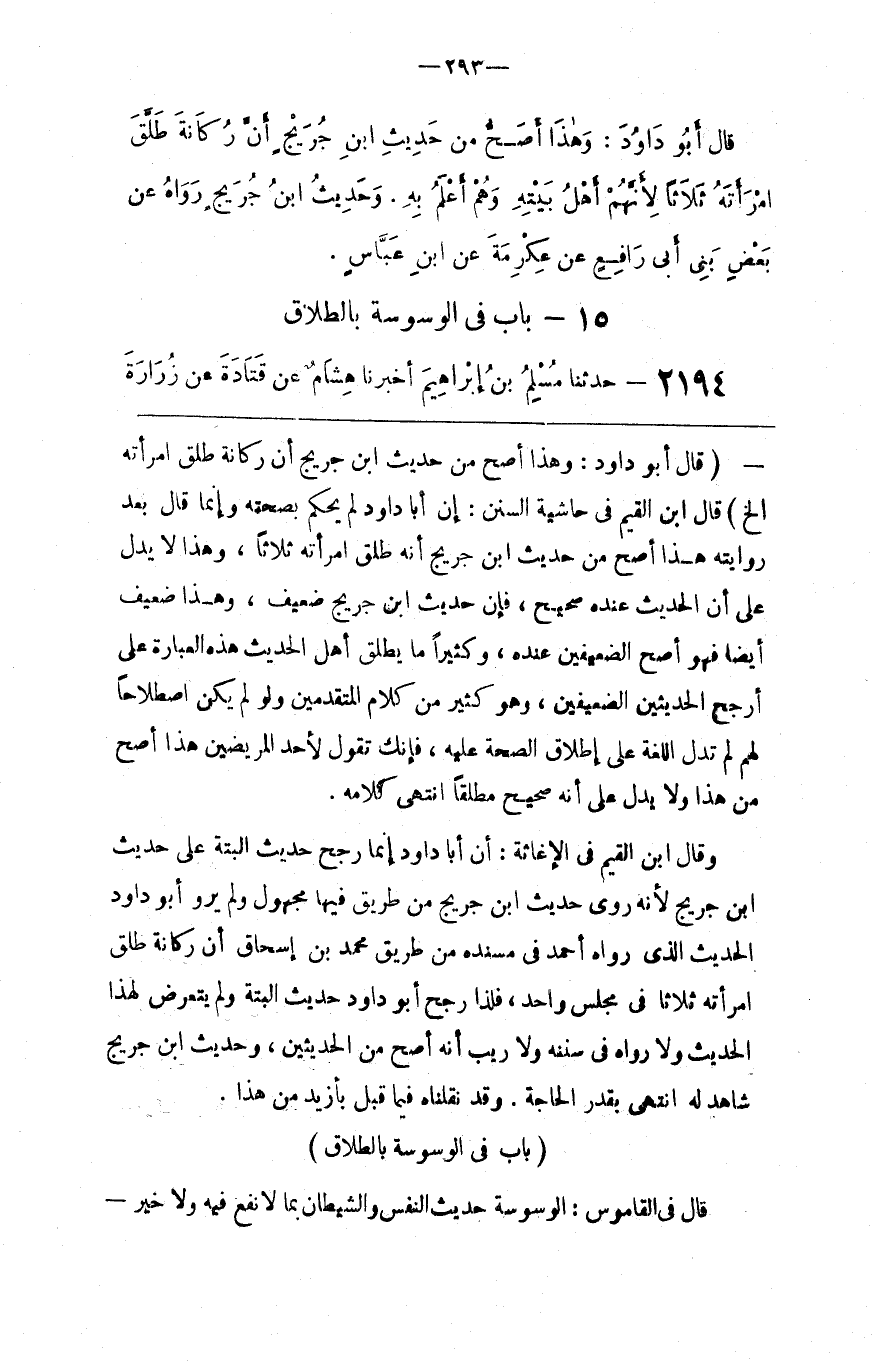 —٢٩٣—
قال أَبُو دَاوُدَ : وَهٰذَا أَصَـحُّ من حَدِيثِ ابنِ جُرَيْجٍ أَنَّ رُكَانَةَ طَلَّقَ
امْرَأَتَهُ ثَلَاثًا لِأَنَّهُمْ أَهْلُ بَيْتِهِ وَهُمْ أَعْلَمُ بِهِ . وَحَدِيثُ ابنُ جُرَيجٍ رَوَاهُ عن
بَعْضِ بَنِى أَبى رَافِـعٍ عن عِكْرِمَةَ عن ابنِ عَبَّاسٍ .
١٥ — باب فى الوسوسة بالطلاق
٢١٩٤ — حدثنا مُسْلِمُ بنُ إِبْرَاهِيمَ أخبرنا هِشَامٌ عن قَتَادَةَ عن زُرَارَةَ
— ( قال أبو داود : وهذا أصح من حديث ابن جريج أن ركانة طلق امرأته
الخ ) قال ابن القيم فى حاشية السنن : إن أبا داود لم يحكم بصحته وإنما قال بعد
روايته هـذا أصح من حديث ابن جريج أنه طلق امرأته ثلاثاً ، وهذا لا يدل
على أن الحديث عنده صحيح ، فإن حديث ابن جريج ضعيف ، وهـذا ضعيف
أيضا فهو أصح الضعيفين عنده ، وكثيراً ما يطلق أهل الحديث هذه العبارة على
أرجح الحديثين الضعيفين ، وهو كثير من كلام المتقدمين ولو لم يكن اصطلاحاً
لهم لم تدل اللغة على إطلاق الصحة عليه ، فإنك تقول لأحد المريضين هذا أصح
من هذا ولا يدل على أنه صحيح مطلقاً انتهى كلامه .
وقال ابن القيم فى الإغاثة : أن أبا داود إنما رجح حديث البتة على حديث
ابن جريج لأنه روى حديث ابن جريج من طريق فيها مجهول ولم يرو أبو داود
الحديث الذى رواه أحمد فى مسنده من طريق محمد بن إسحاق أن ركانة طلق
امرأته ثلاثا فى مجلس واحد ، فلذا رجح أبو داود حديث البتة ولم يتعرض لهذا
الحديث ولا رواه فى سننه ولا ريب أنه أصح من الحديثين ، وحديث ابن جريج
شاهد له انتهى بقدر الحاجة . وقد نقلناه فيما قبل بأزيد من هذا .
( باب فى الوسوسة بالطلاق )
قال فى القاموس : الوسوسة حديث النفس والشيطان بما لا نفع فيه ولا خير —